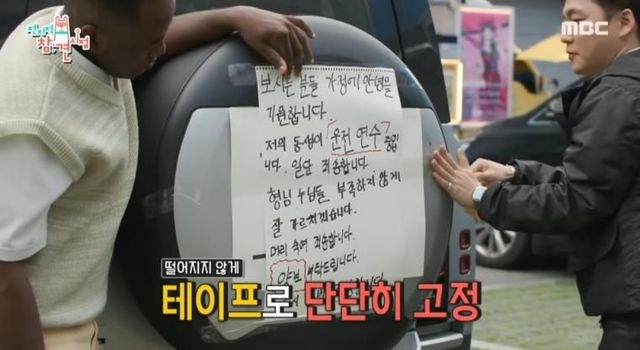 전지적 참견 시점
MBC
보시는 분들 가정에 안녕을
기원합니다.
저의 동생이 운전 연수 중입
니다. 일단 죄송합니다.
형님 누님들 부족하지 않게
잘 가르치겠습니다.
머리 숙여 죄송합니다.
양보 부탁드립니다.
떨어지지 않게
테이프로 단단히 고정